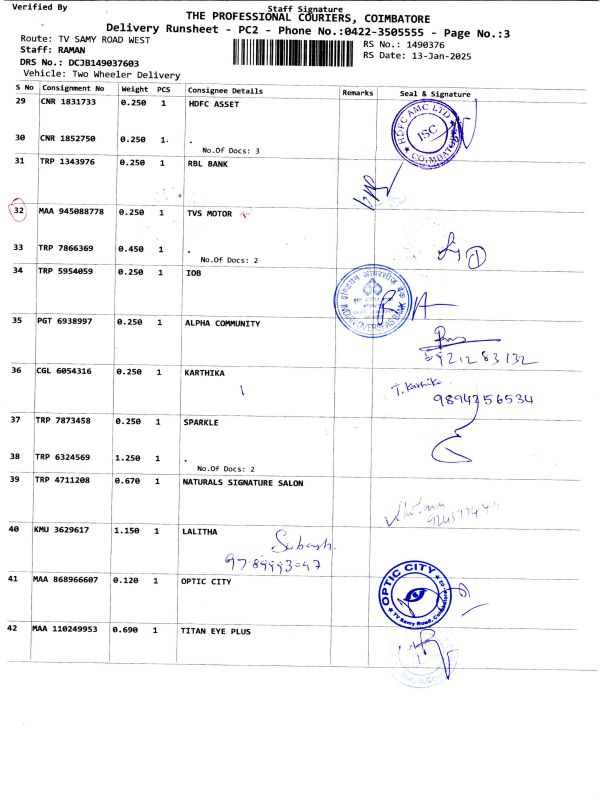 Verified By Staff Signature
THE PROFESSIONAL COURIERS, COIMBATORE
Delivery Runsheet - PC2 - Phone No.:0422-3505555 - Page No.:3
Route: TV SAMY ROAD WEST RS No.: 1490376
Staff: RAMAN RS Date: 13-Jan-2025
DRS No.: DCJB149037603
Vehicle: Two Wheeler Delivery
S No Consignment No Weight PCS Consignee Details Remarks Seal & Signature
29 CNR 1831733 0.250 1 HDFC ASSET
HDFC AMC LTD
ISC
COIMBATORE
30 CNR 1852750 0.250 1 .
No.Of Docs: 3
31 TRP 1343976 0.250 1 RBL BANK
32 MAA 945088778 0.250 1 TVS MOTOR
33 TRP 7866369 0.450 1 .
No.Of Docs: 2
34 TRP 5954059 0.250 1 IOB
INDIAN OVERSEAS BANK
35 PGT 6938997 0.250 1 ALPHA COMMUNITY
36 CGL 6054316 0.250 1 KARTHIKA
T. Karthika
9894256534
37 TRP 7873458 0.250 1 SPARKLE
38 TRP 6324569 1.250 1 .
No.Of Docs: 2
39 TRP 4711208 0.670 1 NATURALS SIGNATURE SALON
40 KMU 3629617 1.150 1 LALITHA
Subash.
41 MAA 868966607 0.120 1 OPTIC CITY
OPTIC CITY
TV Samy Road, Coimbatore
42 MAA 110249953 0.690 1 TITAN EYE PLUS